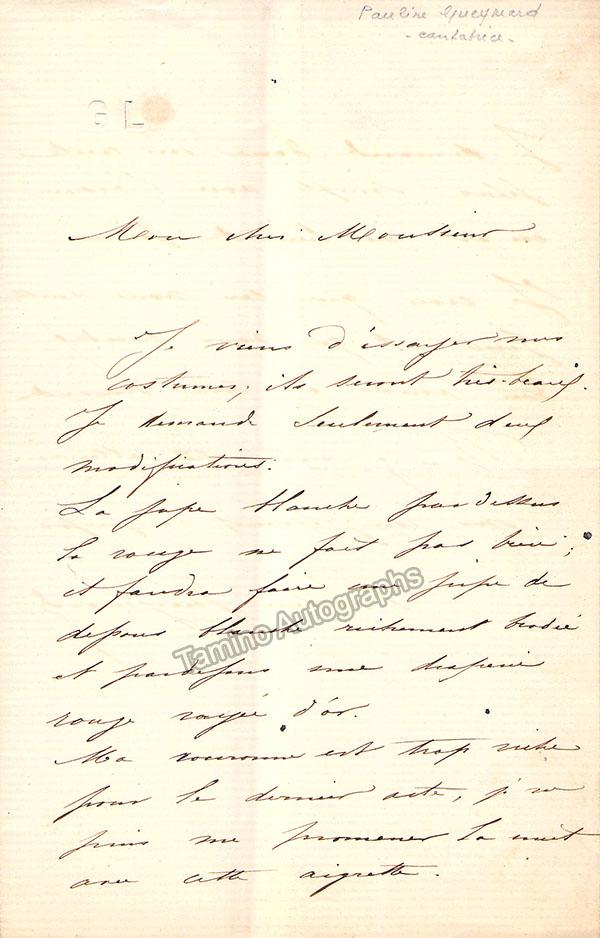 Pauline Gueymard
- cantatrice -
G L
Mon cher Monsieur
Je viens d'éssayer mes
costumes; ils seront très-beaux.
Je demande seulement deux
modifications:
La jupe blanche pardessus
la rouge ne fait pas bien;
il faudra faire une jupe de
dessous blanche richement brodée
et pardessus une draperie
rouge rayée d'or.
Ma couronne est trop riche
pour le dernier acte, je ne
puis me promener la nuit
avec cette aigrette.
Tamino Autographs